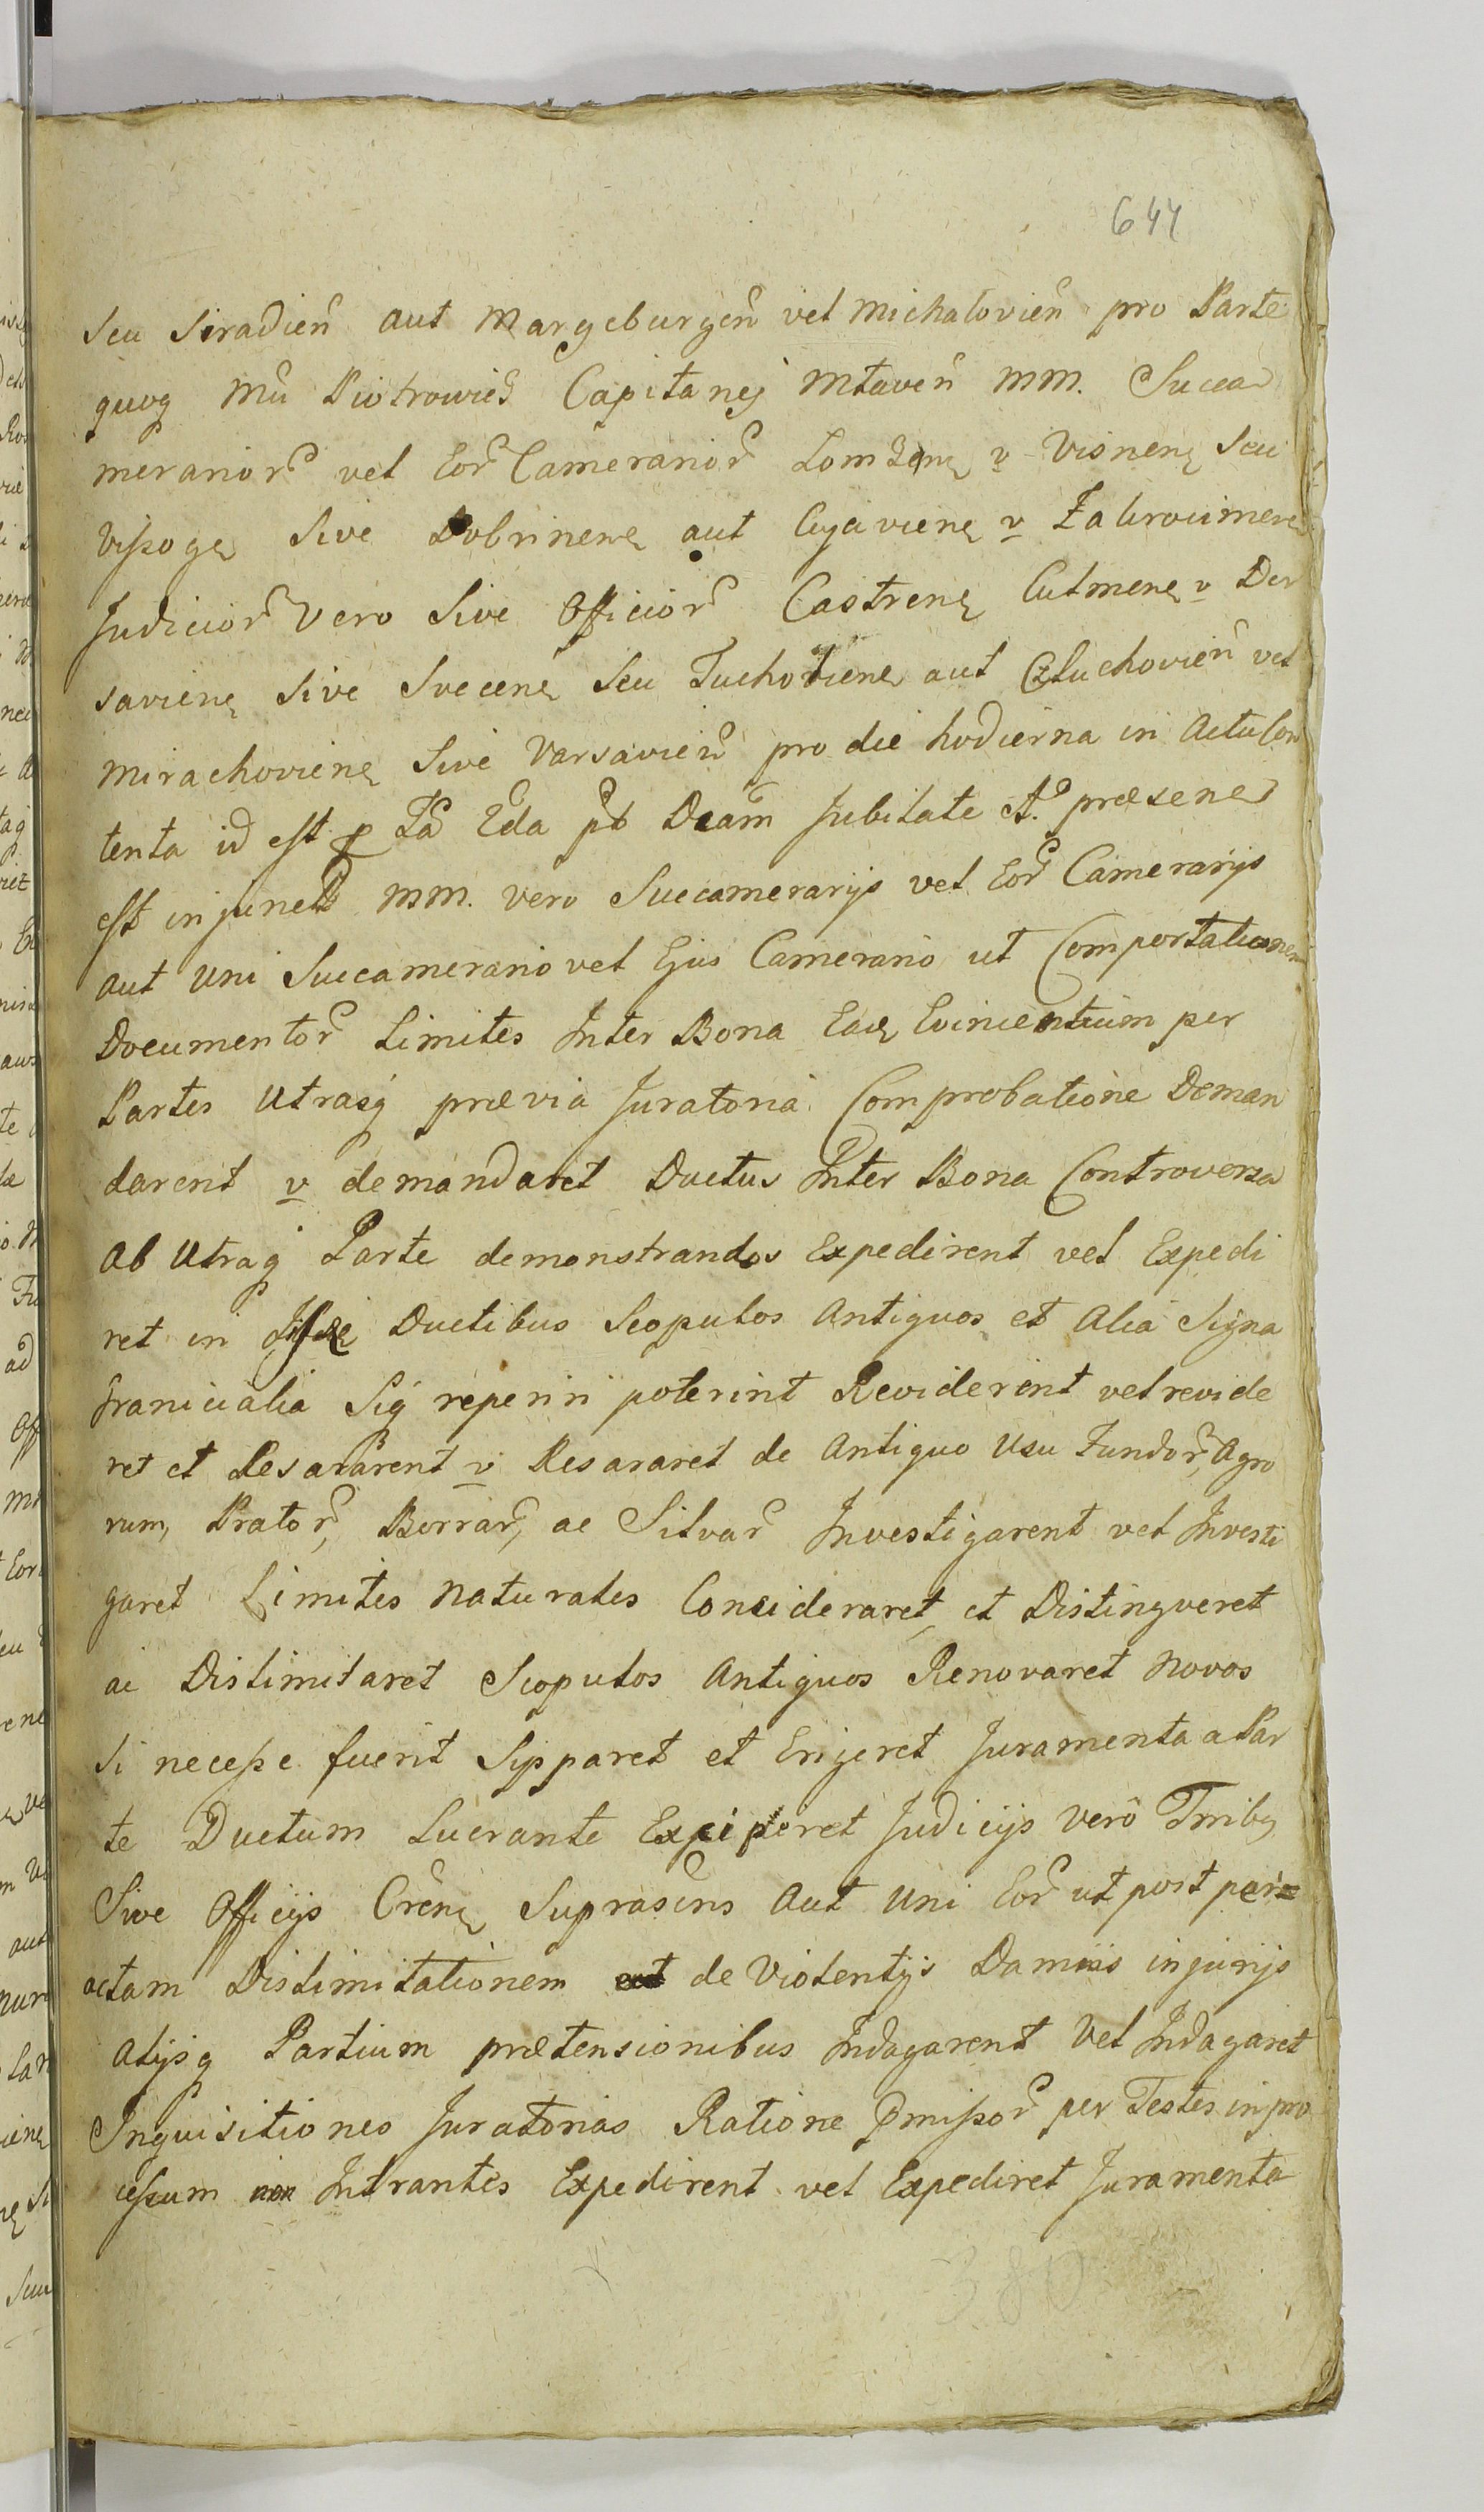 644
seu Siradien̄ aut Margeburgen̄ vel Michalovien̄ pro Parte
quoq Mn̄ Piotrowicz Capitanej Mlaven̄ MM. Succa
merarior̄ vel Eor̄ Camerarior̄ Lomzenę v Visnenę seu
Vißogę Sive Dobrinenę aut Cujavienę v Zakrocimenę
Judicior̄ Vero Sive Officior̄ Castrenę Culmenę v Der
savienę Sive Svecenę Seu Tucholienę aut Człuchovien̄ vel
Mirachovienę Sive Varsavien̄ pro die hodierna in Actu Con
tenta id est Jubilate præsene
est MM. vero Succamerarijs vel Eor̄ Camerarijs
aut Uni Succamerario vel Ejus Camerario ut Comportationem
Documentor̄ Limites Inter Bona Eadę Evincentium per
Partes Utrasq prævia Juratoria Comprobatione Deman
darent v demandaret Ductus Inter Bona Controversa
ab Utraq Parte demonstrandos Expedirent vel Expedi
ret in Ductibus Scopulos Antiquos et Alia Signa
Granicialia Siq reperiri poterint Reviderent vel revide
ret et Resararent v Resararet de Antiquo Usu Fundor̄, Agro
rum, Prator̄, Borrar̄, ac Silvar̄ Investigarent vel Investi
garet Limites Naturales Consideraret, et Distingveret
ac Dislimitaret Scopulos Antiquos Renovaret Novos
Si neceße fuerit Sypparet et Erigeret Juramenta a Par
te Ductum Lucrante Exciperet Judicijs Vero Trribę
Sive Officijs Cren̄ę Suprascrīs Aut Uni Eor̄ ut post per=
actam Dislimitationem de Violentijs Damnis injurijs
alijsq Partium prætensionibus Indagarent Vel Indagaret
Inquisitiones Juratorias Ratione Pmißor̄ per Testes in pro
ceßum non Intrantes Expedirent vel Expediret Juramenta
380